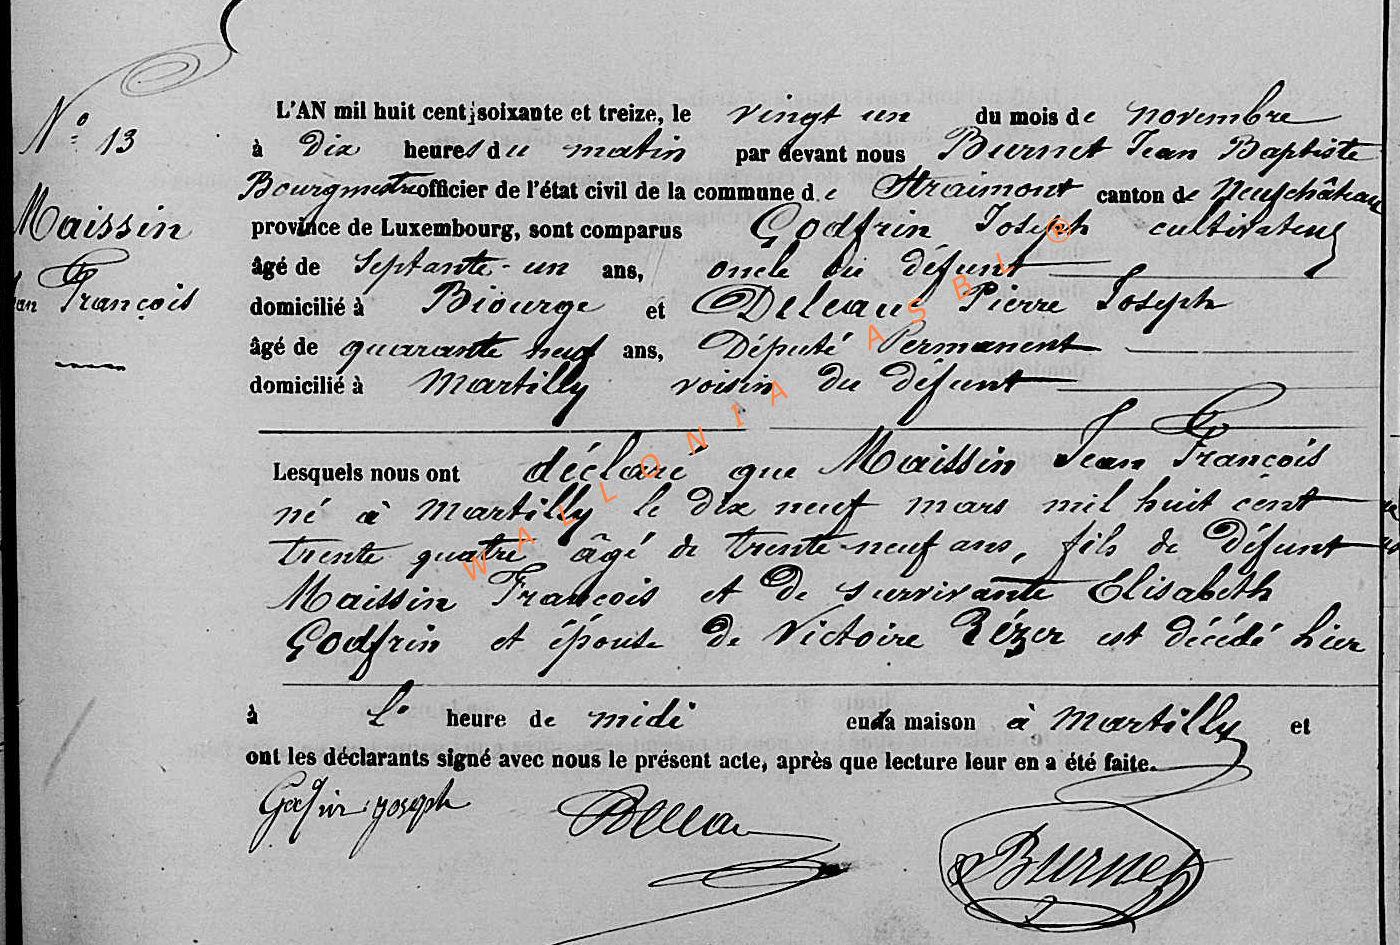 N° 13
Maissin
Jean François
L'AN mil huit cent soixante et treize, le vingt un du mois de novembre
à dix heures du matin par devant nous Burnet Jean Baptiste
Bourgmestre officier de l'état civil de la commune de Straimont canton de Neufchâteau
province de Luxembourg, sont comparus Godfrin Joseph cultivateur
âgé de septante-un ans, oncle du défunt
domicilié à Biourge et Deleau Pierre Joseph
âgé de quarante neuf ans, Député Permanent
domicilié à Martilly voisin du défunt
Lesquels nous ont déclaré que Maissin Jean François
né à Martilly le dix neuf mars mil huit cent
trente quatre âgé de trente-neuf ans, fils de défunt
Maissin François et de survivante Elisabeth
Godfrin et épouse de Victoire est décédé hier
à L' heure de midi en sa maison à Martilly et
ont les déclarants signé avec nous le présent acte, après que lecture leur en a été faite.
Godfrin Joseph Deleau
Burnet
WALLONIA ASBL ®